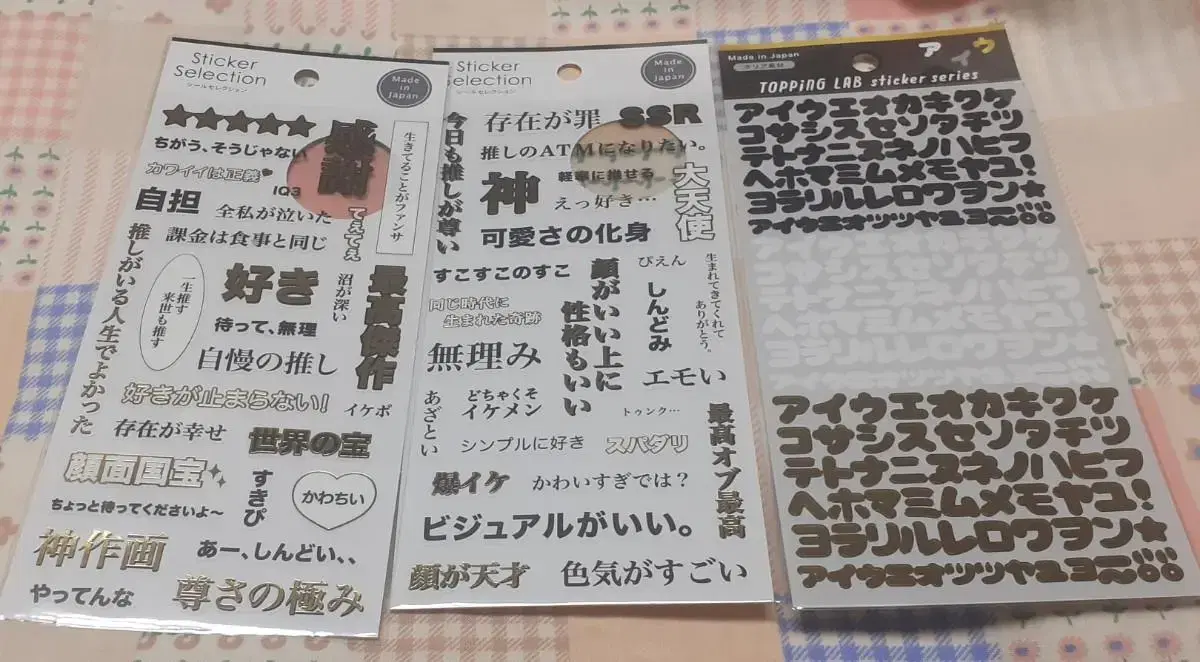 Sticker
Selection
シールセレクション
Made in Japan
★★★★★
ちがう、そうじゃない
カワイイは正義
IQ3
感謝
生きてることがファンサ
自担
全私が泣いた
てぇてぇ
課金は食事と同じ
推しがいる人生でよかった
一生推す
来世も推す
好き
沼が深い
最高傑作
待って、無理
自慢の推し
好きが止まらない!
イケボ
存在が幸せ
世界の宝
顔面国宝
すきぴ
かわちい
ちょっと待ってくださいよ〜
神作画
あー、しんどい、、
やってんな
尊さの極み
Sticker
Selection
シールセレクション
Made in Japan
今日も推しが尊い
存在が罪
SSR
推しのATMになりたい。
神
軽率に推せる
えっ好き…
大天使
可愛さの化身
すこすこのすこ
顔がいい上に
性格もいい
ぴえん
しんどみ
生まれてきてくれて
ありがとう。
同じ時代に
生まれた奇跡
無理み
エモい
あざとい
どちゃくそ
イケメン
トゥンク…
最高オブ最高
シンプルに好き
スパダリ
爆イケ
かわいすぎでは?
ビジュアルがいい。
顔が天才
色気がすごい
Made in Japan
クリア素材
アイウ
TOPPiNG LAB sticker series
アイウエオカキクケ
コサシスセソタチツ
テトナニヌネノハヒフ
ヘホマミムメモヤユ!
ヨラリルレロワヲン★
ァィゥェォッツャュョー〜
アイウエオカキクケ
コサシスセソタチツ
テトナニヌネノハヒフ
ヘホマミムメモヤユ!
ヨラリルレロワヲン★
アイウエオカキクケ
コサシスセソタチツ
テトナニヌネノハヒフ
ヘホマミムメモヤユ!
ヨラリルレロワヲン★